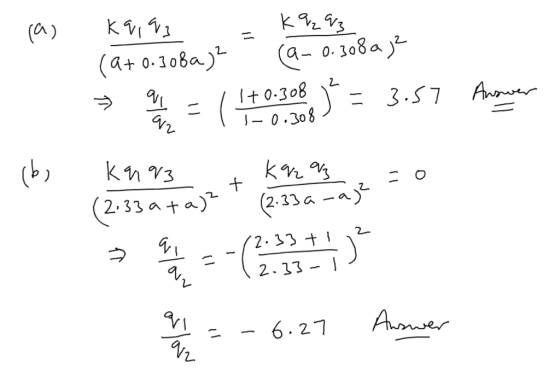 (a) K q₁ q₃ / (a + 0.308a)² = K q₂ q₃ / (a - 0.308a)²
⇒ q₁ / q₂ = ( 1 + 0.308 / 1 - 0.308 )² = 3.57 Answer
(b) K q₁ q₃ / (2.33a + a)² + K q₂ q₃ / (2.33a - a)² = 0
⇒ q₁ / q₂ = - ( 2.33 + 1 / 2.33 - 1 )²
q₁ / q₂ = - 6.27 Answer